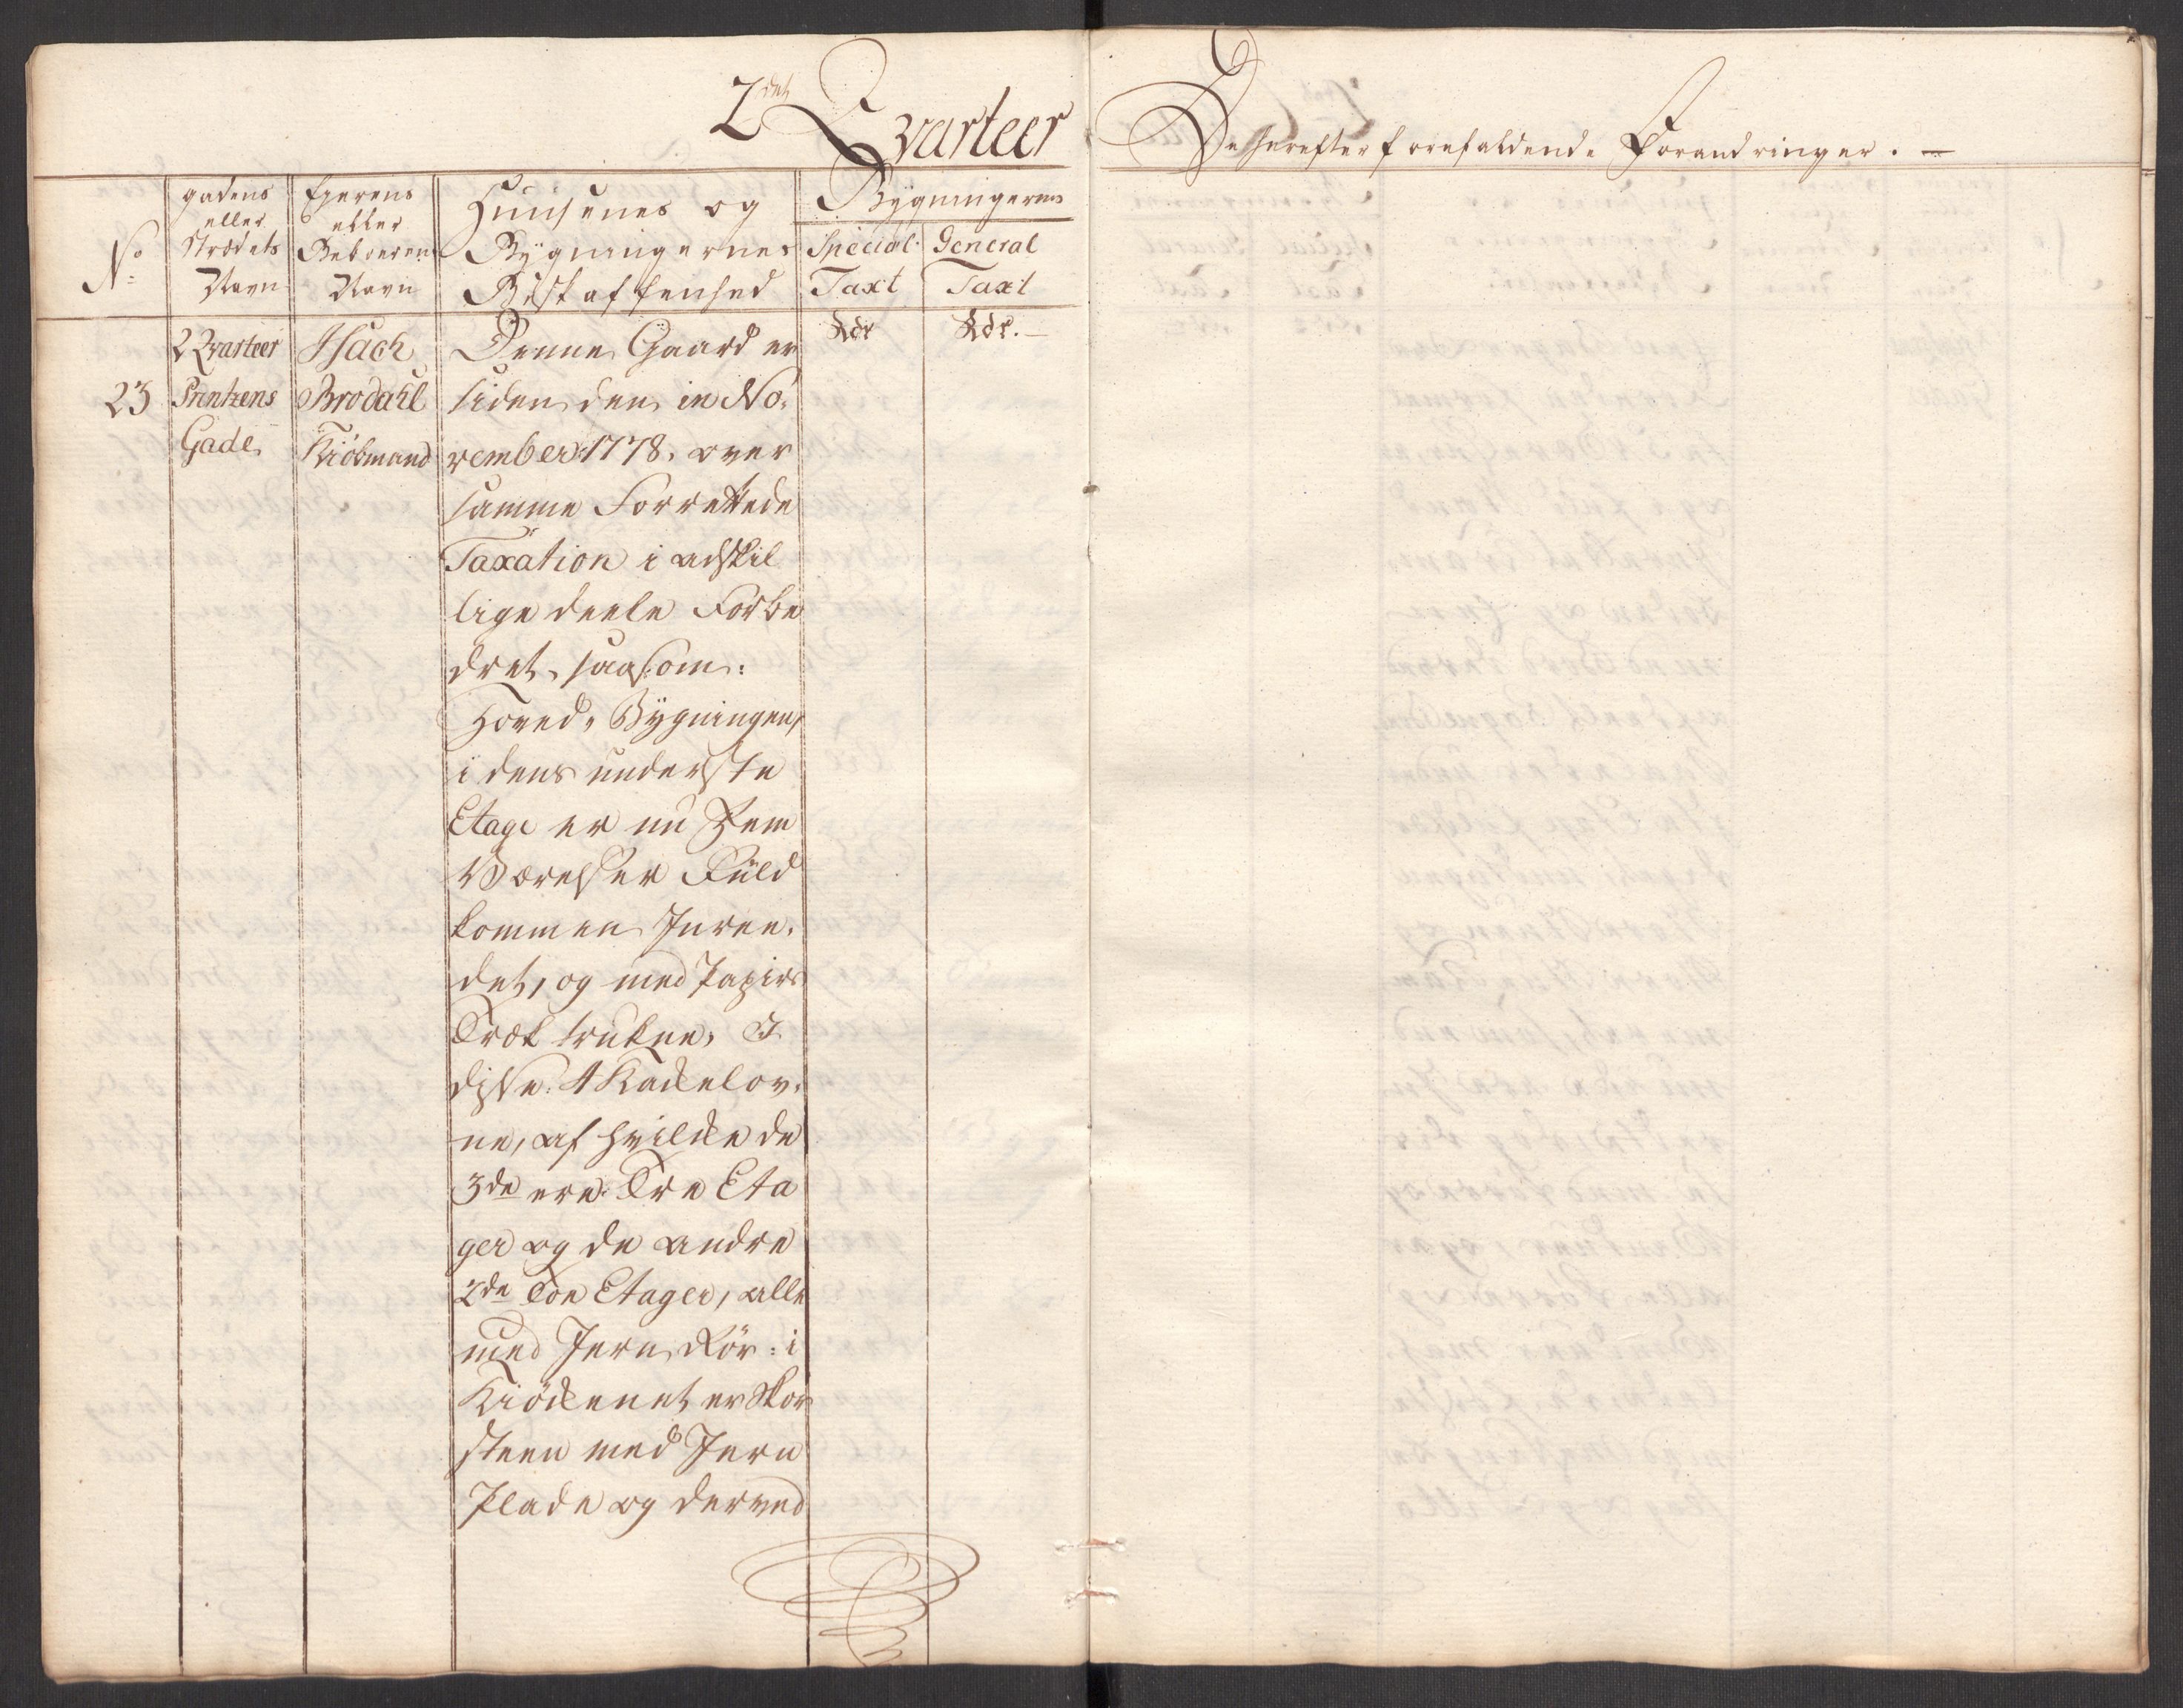 2det Qvarteer
De herefter forefaldende Forandringer. —
No
gadens
eller
Strædets
Navn
Ejerens
eller
Beboerens
Navn
Huusenes og
Bygningernes
Beskaffenhed
Bygningernes
Special Taxt
General Taxt
Rdr
Rdr. —
23
2 Qvarteer
Printzens
Gade
Isach
Brodahl
Kiöbmand
Denne Gaard er
siden den in No-
vember 1778. over
samme Forrettede
Taxation i adskil
lige deele Forbe
dret, saasom:
Hoved-Bygningen,
i dens underste
Etage er nu Fem
Værelser Fuld
kommen Inree-
det, og med Papirs
Træk trukne, I
disse: 4 Kackelov-
ne, af hvilcke de
3de ere Tre Eta
ger og de andre
2de Toe Etager, alle
med Jern Rör: i
Kiöckenet er Skor
steen med Jern
Plade og derved